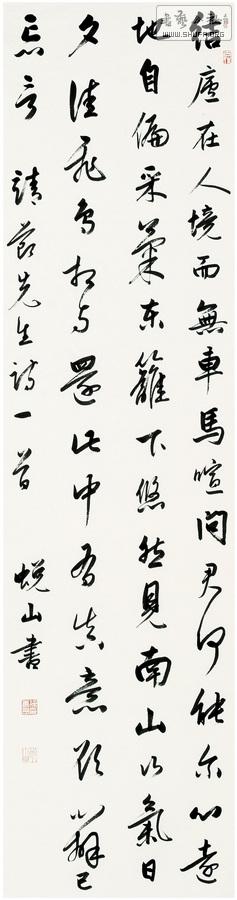 WWW.SHUFA.ORG
结廬在人境而無車馬喧问君何能尔心遠
地自偏采菊东籬下悠然見南山山氣日
夕佳飛鳥相与還此中有真意欲辨已
忘言 靖節先生詩一首 蜕山書